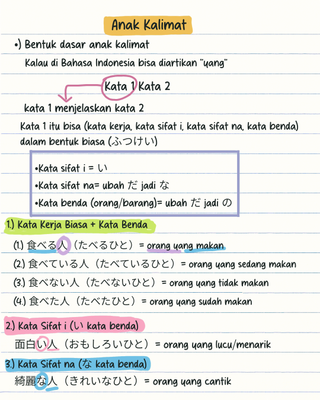 Anak Kalimat
•) Bentuk dasar anak kalimat
Kalau di Bahasa Indonesia bisa diartikan "yang"
Kata 1 Kata 2
kata 1 menjelaskan kata 2
Kata 1 itu bisa (kata kerja, kata sifat i, kata sifat na, kata benda)
dalam bentuk biasa (ふつけい)
•Kata sifat i = い
•Kata sifat na= ubah だ jadi な
•Kata benda (orang/barang)= ubah だ jadi の
1.) Kata Kerja Biasa + Kata Benda
(1) 食べる人（たべるひと）= orang yang makan
(2) 食べている人（たべているひと）= orang yang sedang makan
(3) 食べない人（たべないひと）= orang yang tidak makan
(4) 食べた人（たべたひと）= orang yang sudah makan
2.) Kata Sifat i (い kata benda)
面白い人（おもしろいひと）= orang yang lucu/menarik
3.) Kata Sifat na (な kata benda)
綺麗な人（きれいなひと）= orang yang cantik